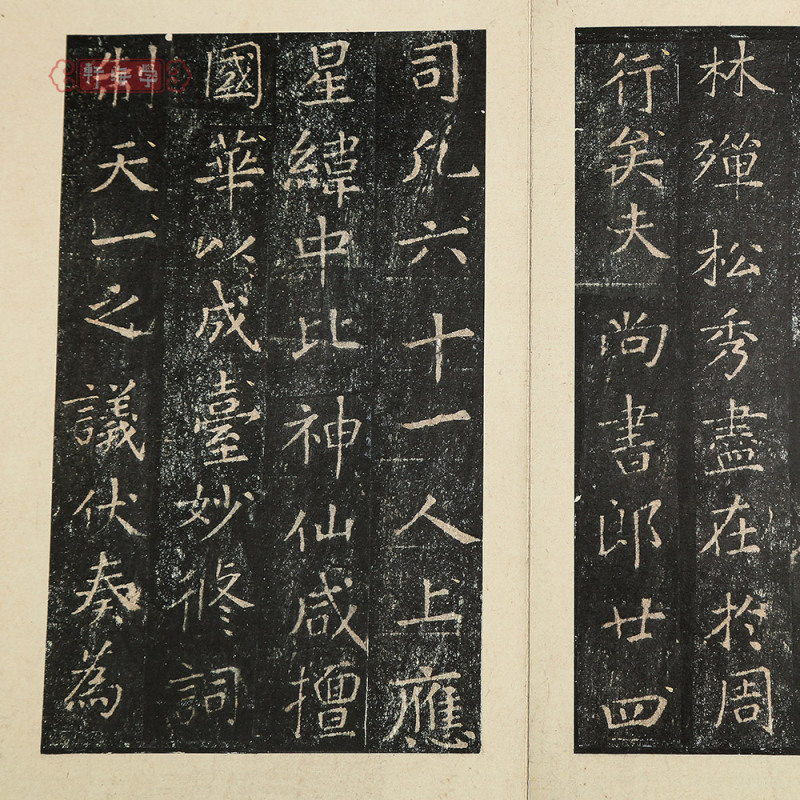 林殫松秀盡在於周
行矣夫尚書郎廿四
司凡六十一人上應
星緯中比神仙咸擅
國華以成臺妙修詞
制天一之議伏奏為
軒墨學